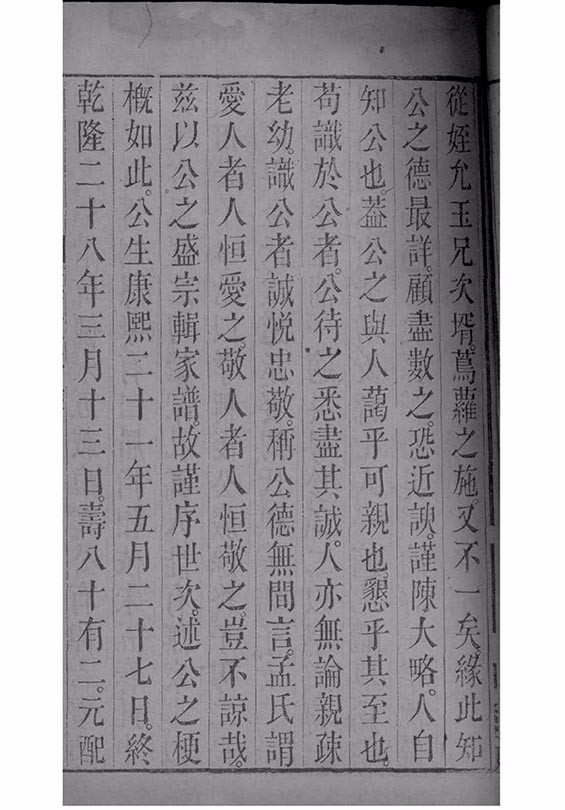 從姪允玉兄次壻。蔦蘿之施。又不一矣。緣此知
公之德最詳。顧盡數之。恐近諛。謹陳大略。人自
知公也。葢公之與人藹乎可親也。懇乎其至也。
苟識於公者。公待之悉盡其誠。人亦無論親疎
老幼。識公者誠悅忠敬。稱公德無間言。孟氏謂
愛人者人恒愛之。敬人者人恒敬之。豈不諒哉。
兹以公之盛宗輯家譜。故謹序世次。述公之梗
概如此。公生康熙二十一年五月二十七日。終
乾隆二十八年三月十三日。壽八十有二。元配